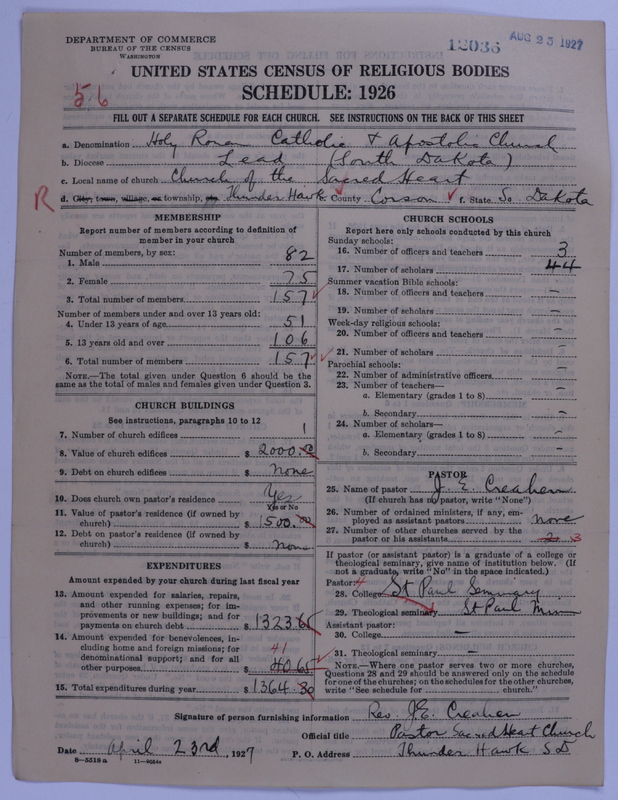 DEPARTMENT OF COMMERCE
BUREAU OF THE CENSUS
WASHINGTON
12036
AUG 25 1927
UNITED STATES CENSUS OF RELIGIOUS BODIES
SCHEDULE: 1926
56
FILL OUT A SEPARATE SCHEDULE FOR EACH CHURCH. SEE INSTRUCTIONS ON THE BACK OF THIS SHEET
a. Denomination Holy Roman Catholic & Apostolic Church
b. Diocese Lead (South Dakota)
c. Local name of church Church of the Sacred Heart
R
d. City, town, village, or township, Thunder Hawk e. County Corson f. State So Dakota
MEMBERSHIP
Report number of members according to definition of
member in your church
Number of members, by sex:
1. Male 82
2. Female 75
3. Total number of members 157
Number of members under and over 13 years old:
4. Under 13 years of age 51
5. 13 years old and over 106
6. Total number of members 157
NOTE.—The total given under Question 6 should be the
same as the total of males and females given under Question 3.
CHURCH BUILDINGS
See instructions, paragraphs 10 to 12
7. Number of church edifices 1
8. Value of church edifices $ 2000.00
9. Debt on church edifices $ None
10. Does church own pastor's residence Yes
Yes or No
11. Value of pastor's residence (if owned by
church) $ 1500.00
12. Debt on pastor's residence (if owned by
church) $ None
EXPENDITURES
Amount expended by your church during last fiscal year
13. Amount expended for salaries, repairs,
and other running expenses; for im-
provements or new buildings; and for
payments on church debt $ 1323.65
14. Amount expended for benevolences, in-
cluding home and foreign missions; for
denominational support; and for all
other purposes $ 40.65
41
15. Total expenditures during year $ 1364.30
CHURCH SCHOOLS
Report here only schools conducted by this church
Sunday schools:
16. Number of officers and teachers 3
17. Number of scholars 44
Summer vacation Bible schools:
18. Number of officers and teachers —
19. Number of scholars —
Week-day religious schools:
20. Number of officers and teachers —
21. Number of scholars —
Parochial schools:
22. Number of administrative officers —
23. Number of teachers—
a. Elementary (grades 1 to 8) —
b. Secondary —
24. Number of scholars—
a. Elementary (grades 1 to 8) —
b. Secondary —
PASTOR
25. Name of pastor J. E. Creahen
(If church has no pastor, write "None")
26. Number of ordained ministers, if any, em-
ployed as assistant pastors None
27. Number of other churches served by the
pastor or his assistants 2 3
If pastor (or assistant pastor) is a graduate of a college or
theological seminary, give name of institution below. (If
not a graduate, write "No" in the space indicated.)
Pastor:
28. College St Paul Seminary
29. Theological seminary St Paul Minn
Assistant pastor:
30. College —
31. Theological seminary —
NOTE.—Where one pastor serves two or more churches,
Questions 28 and 29 should be answered only on the schedule
for one of the churches; on the schedules for the other churches,
write "See schedule for church."
Signature of person furnishing information Rev. J.E. Creahen
Official title Pastor Sacred Heart Church
Date April 23rd, 1927 P. O. Address Thunder Hawk S D
8—5518 a